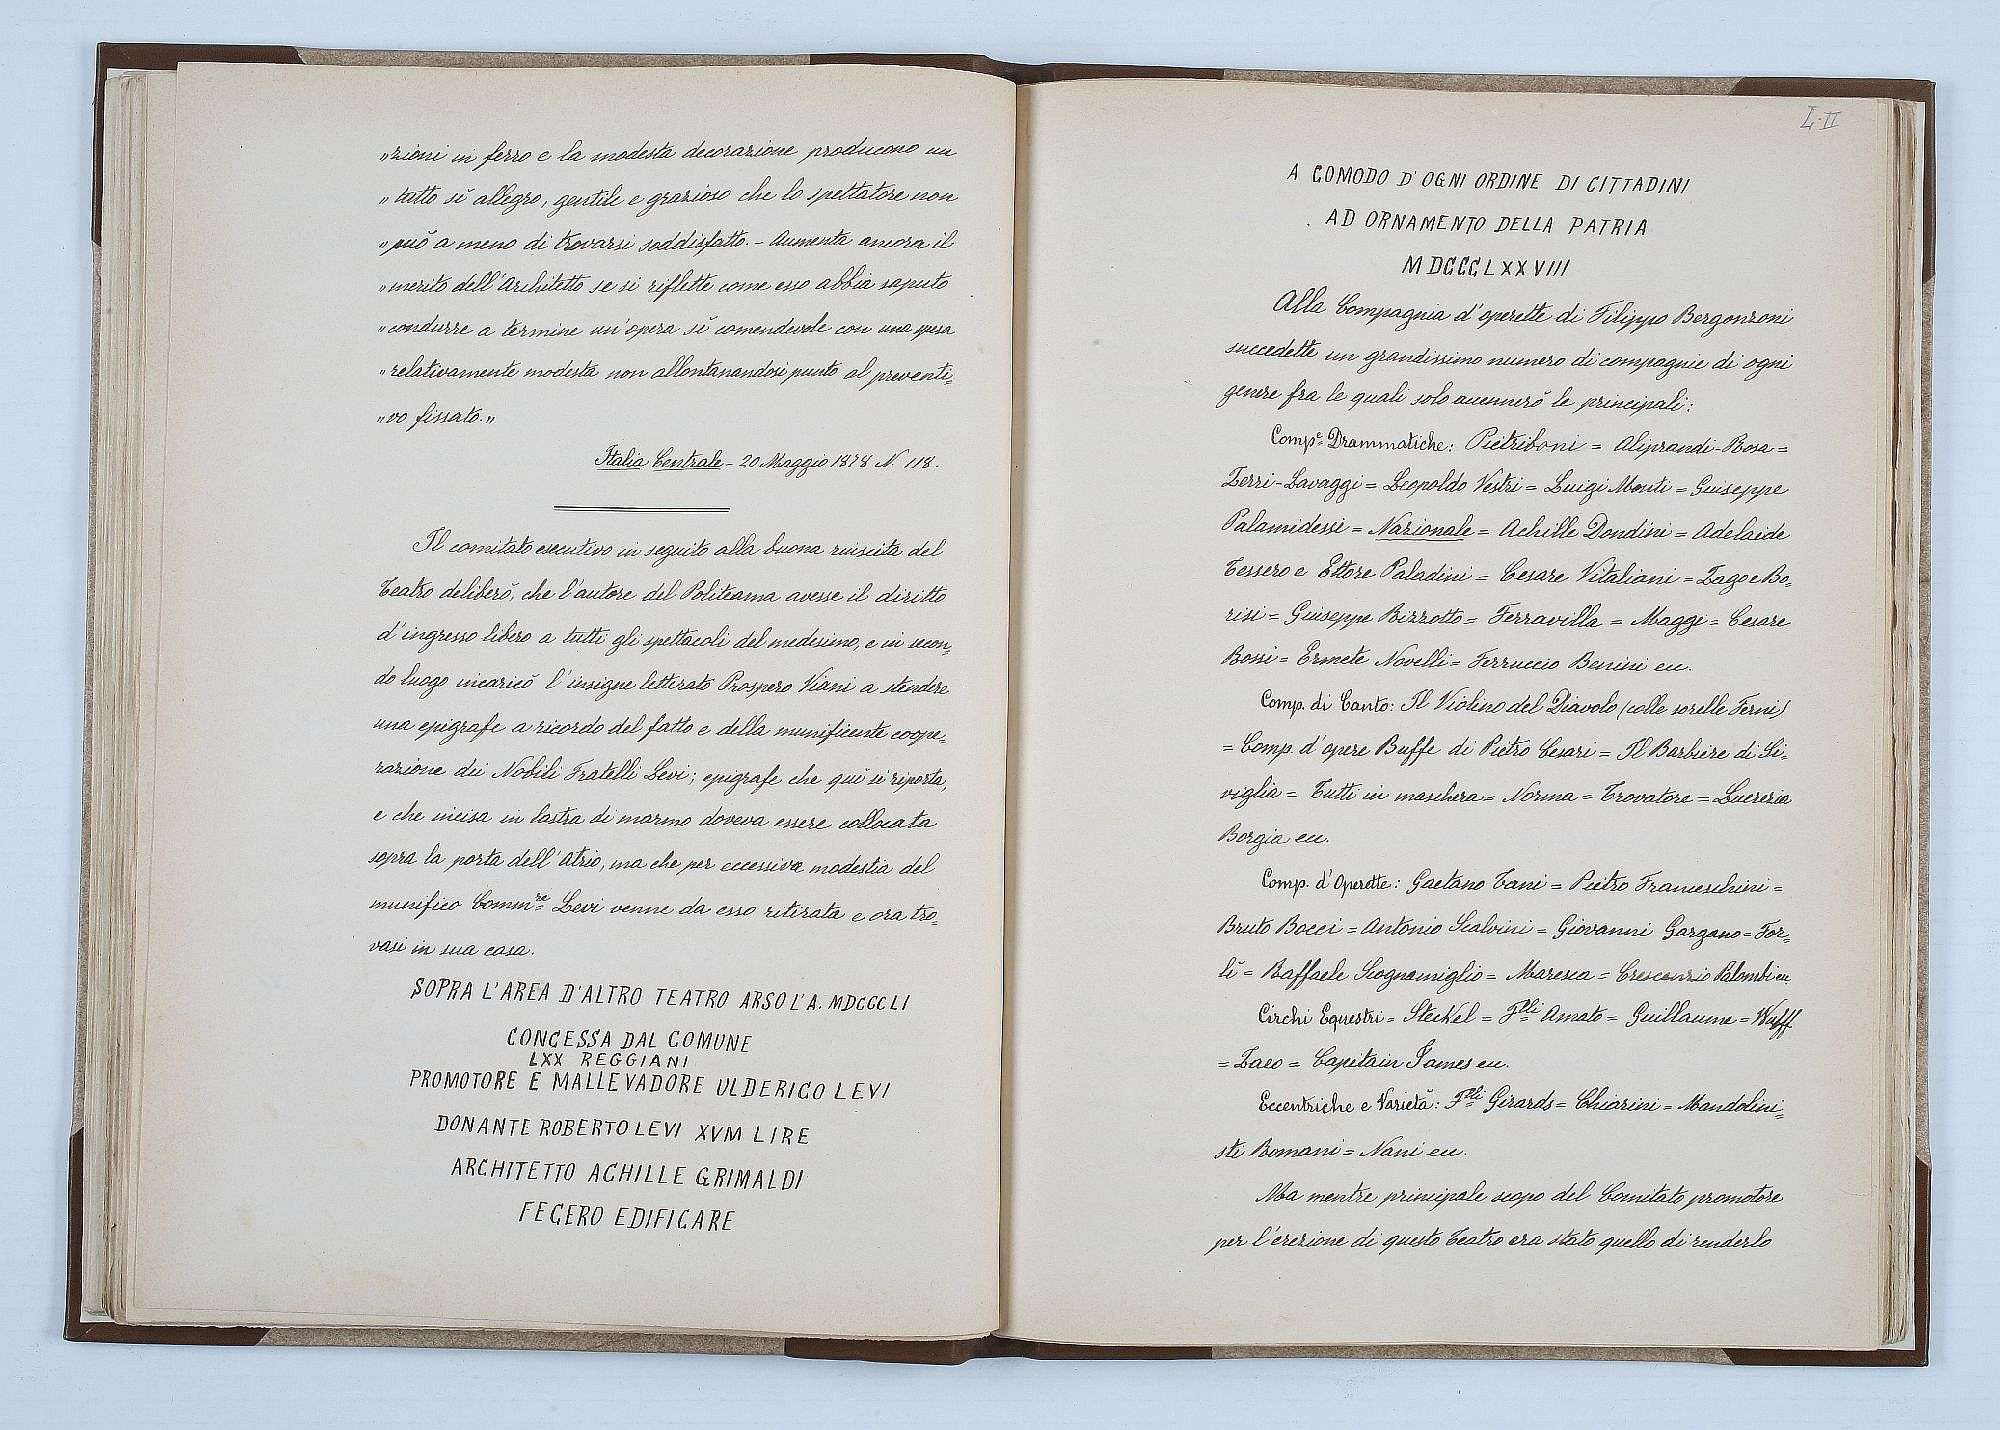 „zioni in ferro e la modesta decorazione producono un
„tutto sì allegro, gentile e grazioso che lo spettatore non
„può a meno di trovarsi soddisfatto. – Aumenta ancora il
„merito dell'Architetto se si riflette come esso abbia saputo
„condurre a termine un'opera sì comendevole con una spesa
„relativamente modesta non allontanandosi punto al preventi=
„vo fissato.„
Italia Centrale – 20 Maggio 1878 N. 118.
Il comitato esecutivo in seguito alla buona riuscita del
Teatro deliberò, che l'autore del Politeama avesse il diritto
d'ingresso libero a tutti gli spettacoli del medesimo, e in secon=
do luogo incaricò l'insigne letterato Prospero Viani a stendere
una epigrafe a ricordo del fatto e della munificente coope=
razione dei Nobili Fratelli Levi; epigrafe che quì si riporta,
e che incisa in lastra di marmo doveva essere collocata
sopra la porta dell'Atrio, ma che per eccessiva modestia del
munifico Comm.re Levi venne da esso ritirata e ora tro=
vasi in sua casa.
SOPRA L'AREA D'ALTRO TEATRO ARSO L'A. MDCCCLI
CONCESSA DAL COMUNE
LXX REGGIANI
PROMOTORE E MALLEVADORE ULDERICO LEVI
DONANTE ROBERTO LEVI XVM LIRE
ARCHITETTO ACHILLE GRIMALDI
FECERO EDIFICARE
L-II
A COMODO D'OGNI ORDINE DI CITTADINI
AD ORNAMENTO DELLA PATRIA
MDCCCLXXVIII
Alla Compagnia d'operette di Filippo Bergonzoni
succedette un grandissimo numero di compagnie di ogni
genere fra le quali solo accennerò le principali:
Comp.e Drammatiche: Pietriboni = Aliprandi-Rosa =
Zerri-Lavaggi = Leopoldo Vestri = Luigi Monti = Giuseppe
Palamidessi = Nazionale = Achille Dondini = Adelaide
Tessero e Ettore Paladini = Cesare Vitaliani = Zago e Bo=
risi = Giuseppe Rizzotto = Ferravilla = Maggi = Cesare
Rossi = Ermete Novelli = Ferruccio Benini ecc.
Comp. di Canto: Il Violino del Diavolo (colle sorelle Ferni)
= Comp. d'opere Buffe di Pietro Cesari = Il Barbiere di Si=
viglia = Tutti in maschera = Norma = Trovatore = Lucrezia
Borgia ecc.
Comp. d'Operette: Gaetano Tani = Pietro Franceschini =
Bruto Bocci = Antonio Scalvini = Giovanni Gargano = For=
lì = Raffaele Scognamiglio = Maresca = Crescenzio Palombi ecc.
Circhi Equestri = Steckel = F.lli Amato = Guillaume = Wulff
= Zaeo = Capitain James ecc.
Eccentriche e Varietà: F.lli Girards = Chiarini = Mandolini=
sti Romani = Nani ecc.
Ma mentre principale scopo del Comitato promotore
per l'erezione di questo Teatro era stato quello di renderlo